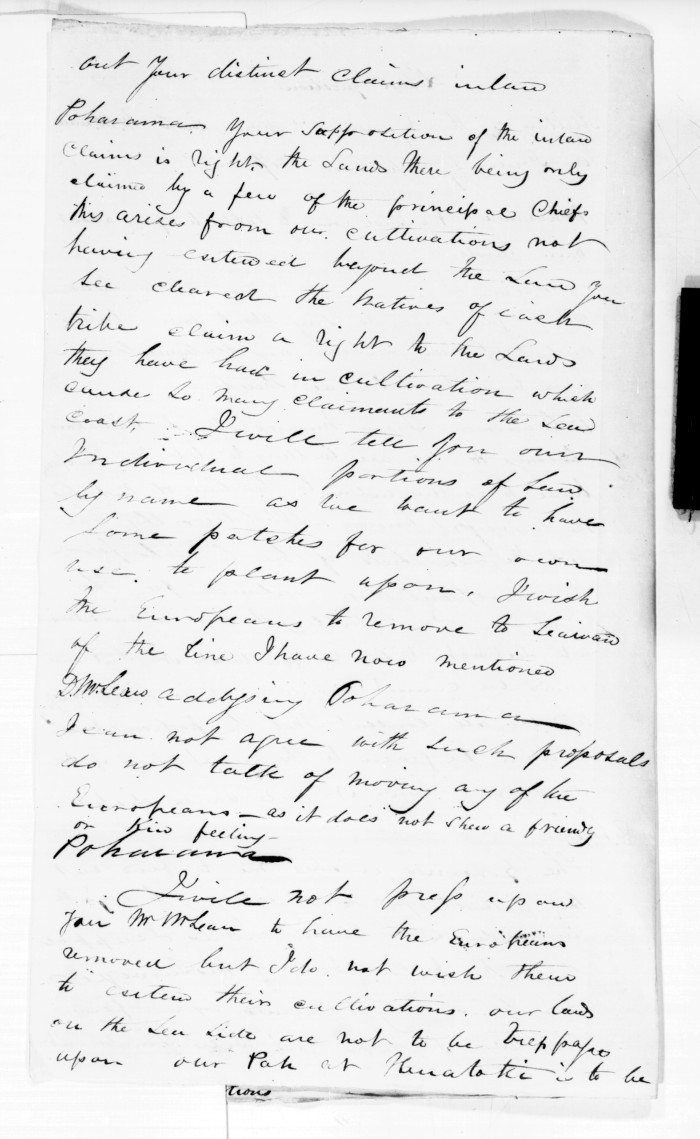 out your distinct claims inland
Poharama. Your supposition of the inland
claims is right. the Lands there being only
claimed by a few of the principal Chiefs
this arises from our cultivations not
having extended beyond the Land you
see cleared the Natives of each
tribe claim a right to the Lands
they have had in cultivation which
cause so many claimants to the Sea
coast. I will tell you our
Individual portions of Land
by name as we want to have
some patches for our own
use to plant upon. I wish
the Europeans to remove to Seaward
of the line I have now mentioned
D. McLean addressing Poharama
I can not agree with such proposals
do not talk of moving any of the
Europeans - as it does not shew a friendly
or feeling
Poharama
I will not press upon
you Mr McLean to have the Europeans
removed but I do not wish them
to extend their cultivations. our lands
on the Sea Side are not to be trespass
upon our Pah at is to be
tions